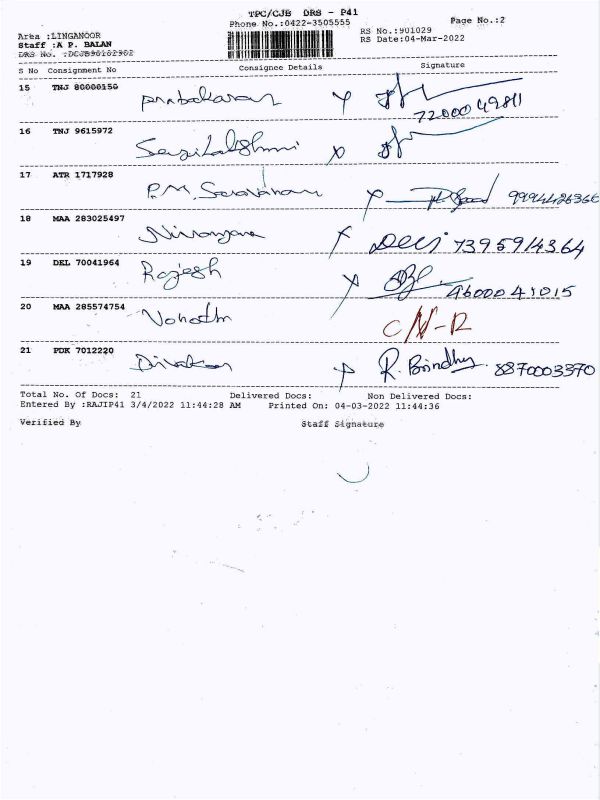 TPC/CJB DRS - P41
Phone No.:0422-3505555
Page No.:2
Area :LINGANOOR
RS No.:901029
Staff :A P. BALAN
RS Date:04-Mar-2022
DRS No. :DCJB90102902
S No Consignment No Consignee Details Signature
15 TNJ 80000150 Prabakaran 7200049811
16 TNJ 9615972
17 ATR 1717928 P.M. Saravanan
18 MAA 283025497 Niranjana Devi 7395914364
19 DEL 70041964 Rajesh 9600041015
20 MAA 285574754 C/N-R
21 PDK 7012220 Divakar R. Brindhy 8870003370
Total No. Of Docs: 21 Delivered Docs: Non Delivered Docs:
Entered By :RAJIP41 3/4/2022 11:44:28 AM Printed On: 04-03-2022 11:44:36
Verified By Staff Signature